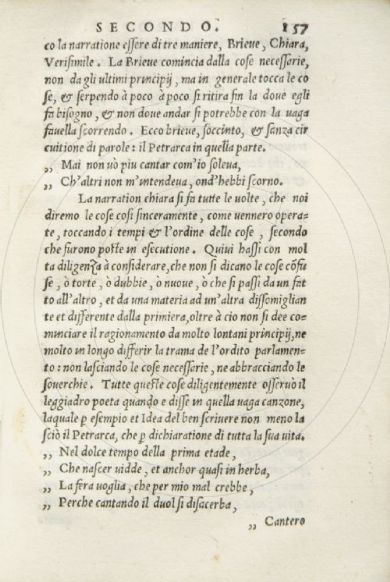 SECONDO. 157
co la narratione essere di tre maniere, Brieue, Chiara,
Verisimile. La Brieue comincia dalla cose necessarie,
non da gli ultimi principij, ma in generale tocca le co
se, & serpendo à poco à poco si ritira fin la doue egli
fa bisogno, & non doue andar si potrebbe con la uaga
fauella scorrendo. Ecco brieue, soccinto, & sanza cir
cuitione di parole: il Petrarca in quella parte.
„ Mai non uò piu cantar com'io soleua,
„ Ch'altri non m'intendeua, ond'hebbi scorno.
La narration chiara si fa tutte le uolte, che noi
diremo le cose cosi sinceramente, come uennero opera=
te, toccando i tempi & l'ordine delle cose, secondo
che furono poste in esecutione. Quiui hassi con mol
ta diligenza à considerare, che non si dicano le cose cõfu
se, ò torte, ò dubbie, ò nuoue, ò che si passi da un fat
to all'altro, et da una materia ad un'altra dissomiglian
te et differente dalla primiera, oltre à cio non si dee co=
minciare il ragionamento da molto lontani principij, ne
molto in longo differir la trama de l'ordito parlamen=
to: non lasciando le cose necessarie, ne abbracciando le
souerchie. Tutte queste cose diligentemente osseruò il
leggiadro poeta quando e disse in quella uaga canzone,
laquale p esempio et Idea del ben scriuere non meno la
sciò il Petrarca, che p dichiaratione di tutta la sua uita.
„ Nel dolce tempo della prima etade,
„ Che nascer uidde, et anchor quasi in herba,
„ La fera uoglia, che per mio mal crebbe,
„ Perche cantando il duol si disacerba,
„ Cantero